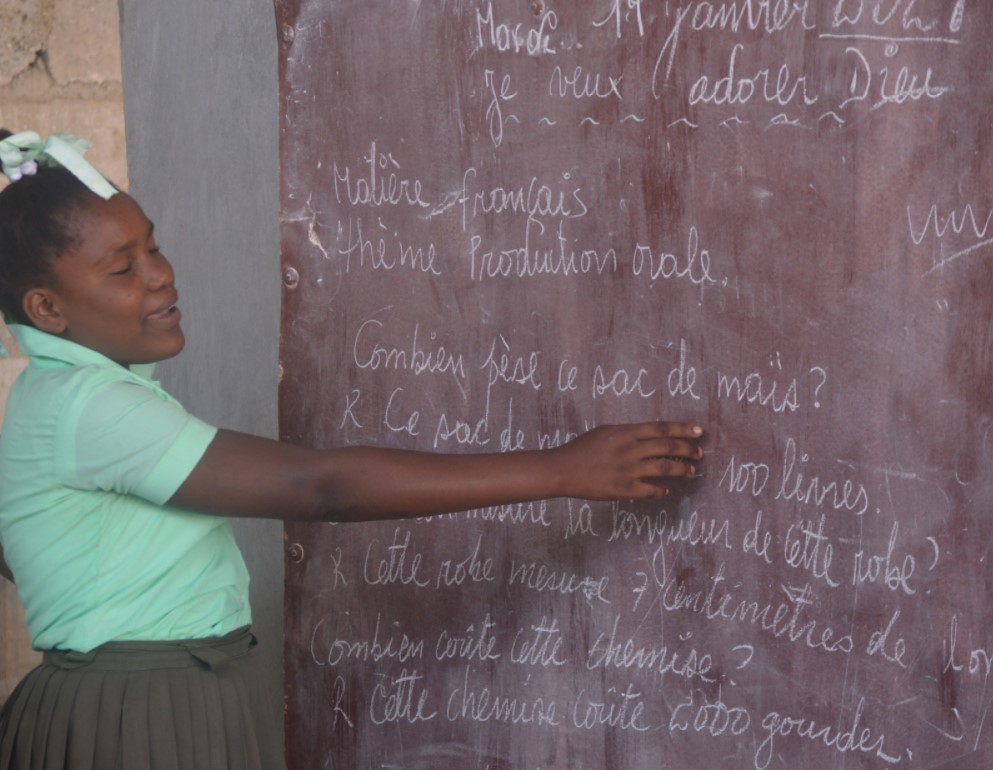 Mardi 19 janvier 2021
je veux adorer Dieu
Matière français
thème Production orale.
Combien pèse ce sac de maïs?
R Ce sac de 100 livres.
mesure la longueur de cette robe?
R Cette robe mesure 7 centimètres de
Combien coûte cette chemise?
R Cette chemise coûte 2000 gourdes.